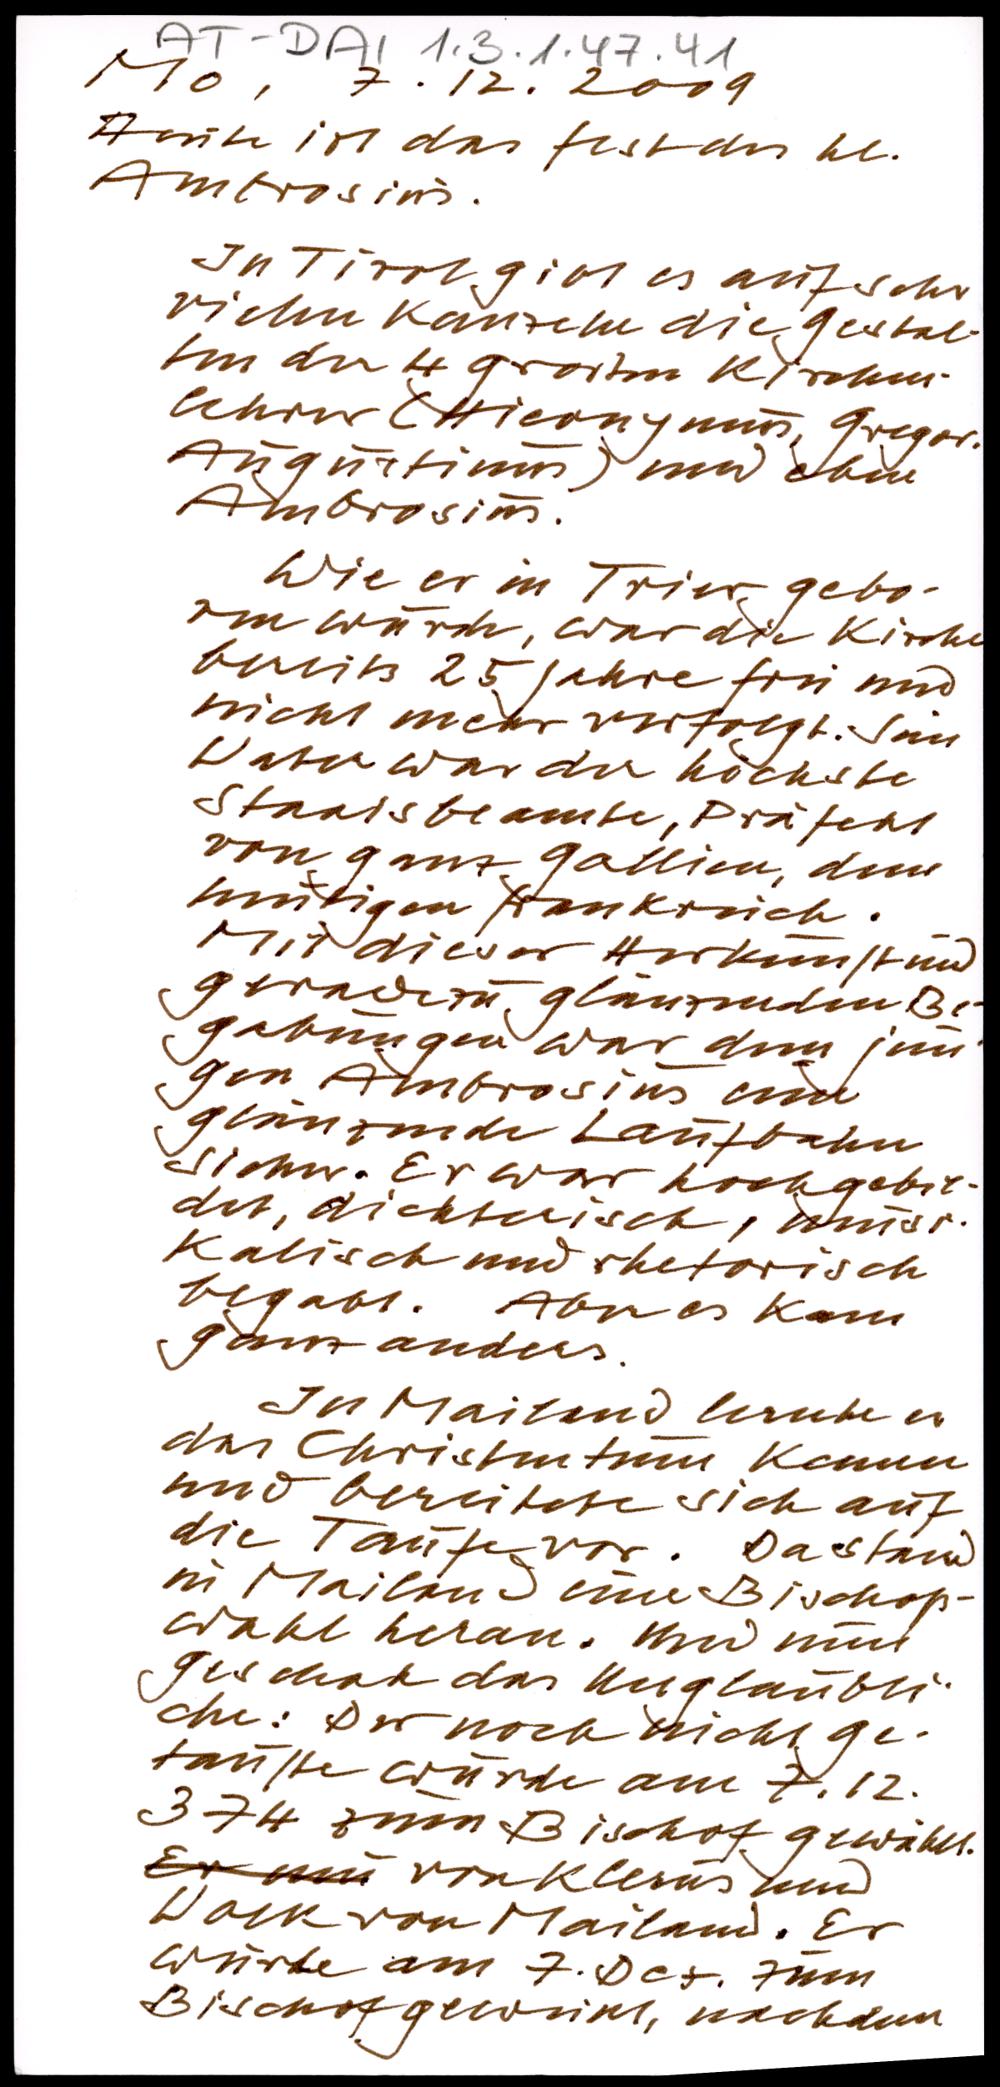 AT-DAI 1.3.1.47.41
Mo, 7.12.2009
Heute ist das Fest des hl.
Ambrosius.
In Tirol gibt es auf sehr
vielen Kanzeln die Gestal-
ten der 4 großen Kirchen-
lehrer (Hieronymus, Gregor,
Augustinus) und eben
Ambrosius.
Wie er in Trier gebo-
ren wurde, war die Kirche
bereits 25 Jahre frei und
nicht mehr verfolgt. Sein
Vater war der höchste
Staatsbeamte, Präfekt
von ganz Gallien, dem
heutigen Frankreich.
Mit dieser Herkunft und
geradezu glänzenden Be-
gabungen war dem jun-
gen Ambrosius eine
glänzende Laufbahn
sicher. Er war hochgebil-
det, dichterisch, musi-
kalisch und rhetorisch
begabt. Aber es kam
ganz anders.
In Mailand lernte er
das Christentum kennen
und bereitete sich auf
die Taufe vor. Da stand
in Mailand eine Bischofs-
wahl heran. Und nun
geschah das Unglaubli-
che: Der noch nicht ge-
taufte wurde am 7.12.
374 zum Bischof gewählt.
Er nun von Klerus und
Volk von Mailand. Er
wurde am 7. Dez. zum
Bischof geweiht, nachdem